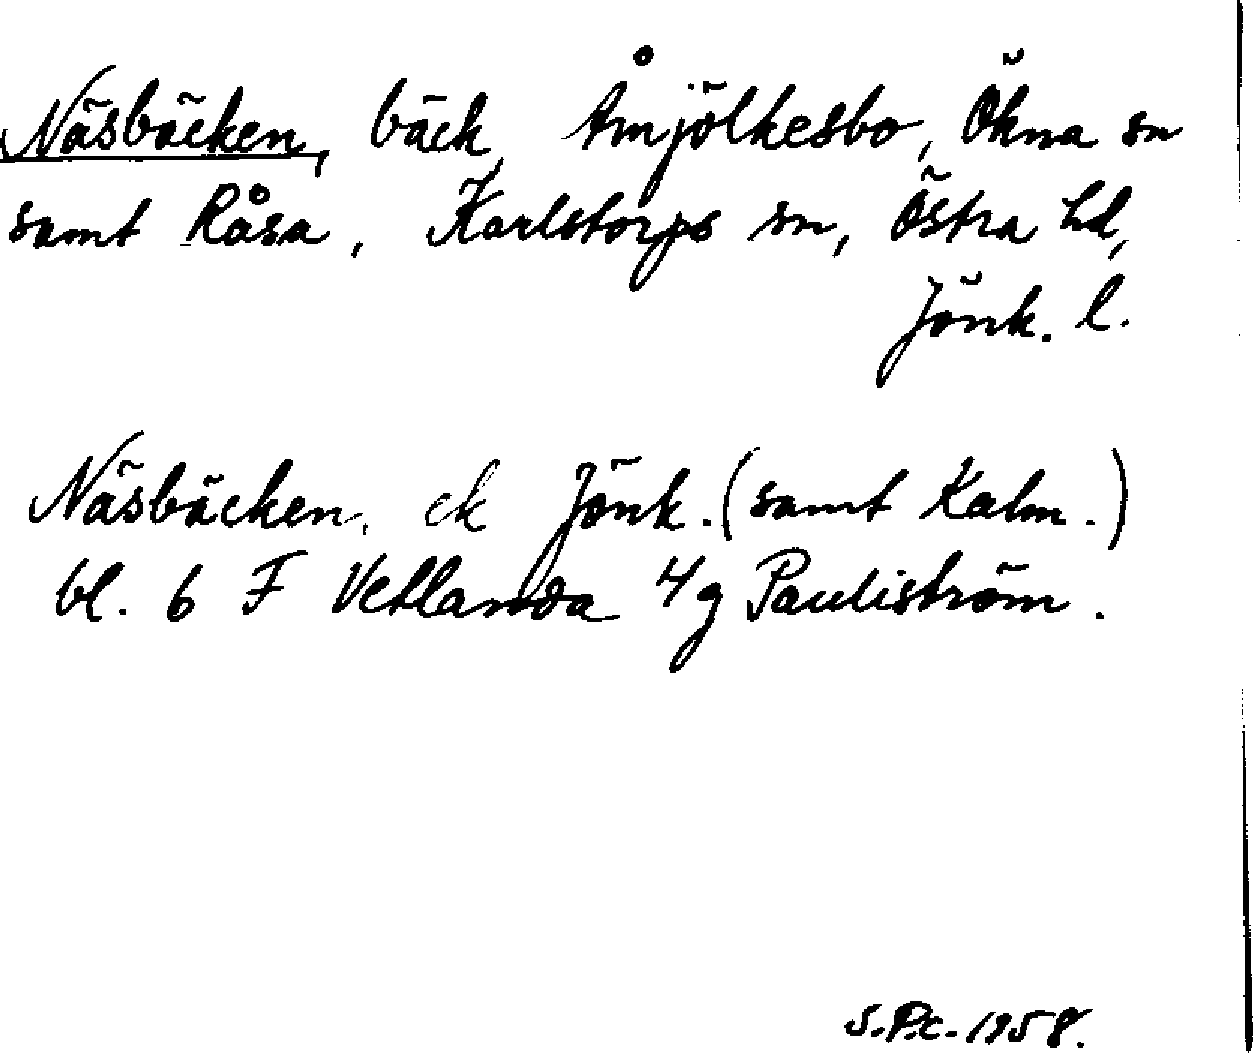 Näsbäcken, bäck, Åmjölkesbo, Ökna sn
samt Råsa, Karlstorps sn, Östra hd,
Jönk. l.
Näsbäcken, ek Jönk. (samt Kalm.)
bl. 6 F Vetlanda 4g Pauliström.
S.P.c. 1958.